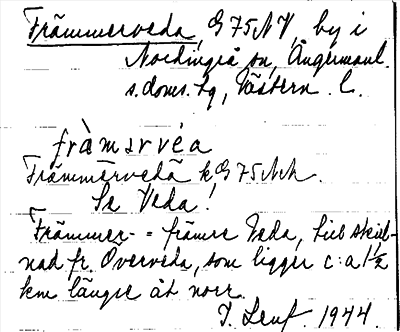 Främmerveda, G75NV, by i
Nordingrå sn, Ångermanl.
s. doms. tg, Västern. l.
fràmərvéa
Främmervedä k G75NA.
Se Veda!
Främmer- = främre Veda, till skill-
nad fr. Överveda, som ligger c:a 1½
km längre åt norr.
1944